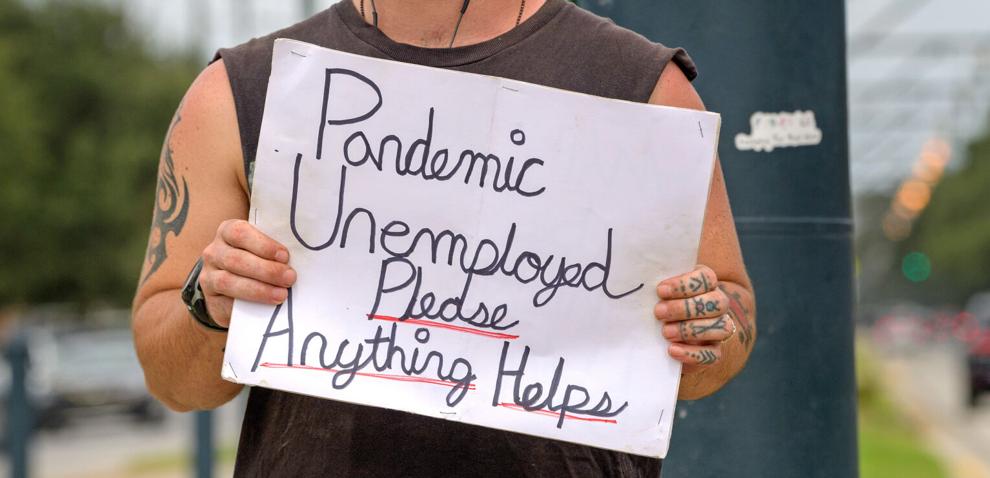 Pandemic
Unemployed
Please
Anything Helps